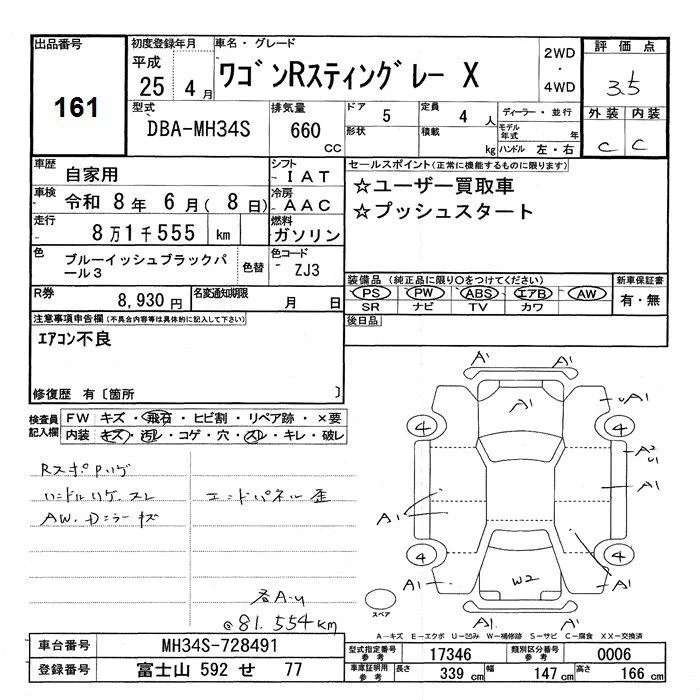 出品番号 161
初度登録年月 平成 25 年 4 月
車名・グレード ワゴンRスティングレー X
2WD ・ 4WD
評価点 3.5
型式 DBA-MH34S
排気量 660 CC
ドア 5
形状
定員 4 人
積載 kg
ディーラー・並行
モデル年式 年
ハンドル 左・右
外装 C 内装 C
車歴 自家用
シフト IAT
車検 令和 8 年 6 月( 8 日)
冷房 AAC
走行 8万1千555 km
燃料 ガソリン
色 ブルーイッシュブラックパール3 色替
色コード ZJ3
R券 8,930 円
名変通知期限 月 日
セールスポイント(正常に機能するものに限ります)
☆ユーザー買取車
☆プッシュスタート
装備品(純正品に限り○をつけてください)
PS PW ABS エアB AW
SR ナビ TV カワ
新車保証書 有・無
後日品
注意事項申告欄(不具合内容等は具体的に記入して下さい)
エアコン不良
修復歴 有〔箇所 〕
検査員記入欄
FW キズ・飛石・ヒビ割・リペア跡・×要
内装 キズ・汚レ・コゲ・穴・スレ・キレ・破レ
RスポPハゲ
ハンドルハゲ.スレ エンドパネル歪
AW.Dミラーキズ
各A-U
@81.554km
A1 A1
A1
UA1
4 4
A2 U1
A1
A1 A1
4 4
W2
A1 A1
A1. A1
スペア
A―キズ E―エクボ U―凹み W―補修跡 S―サビ C―腐食 XX―交換済
車台番号 MH34S-728491
登録番号 富士山 592 せ 77
型式指定番号 参考 17346
類別区分番号 参考 0006
車庫証明用 参考 長さ 339 cm 幅 147 cm 高さ 166 cm